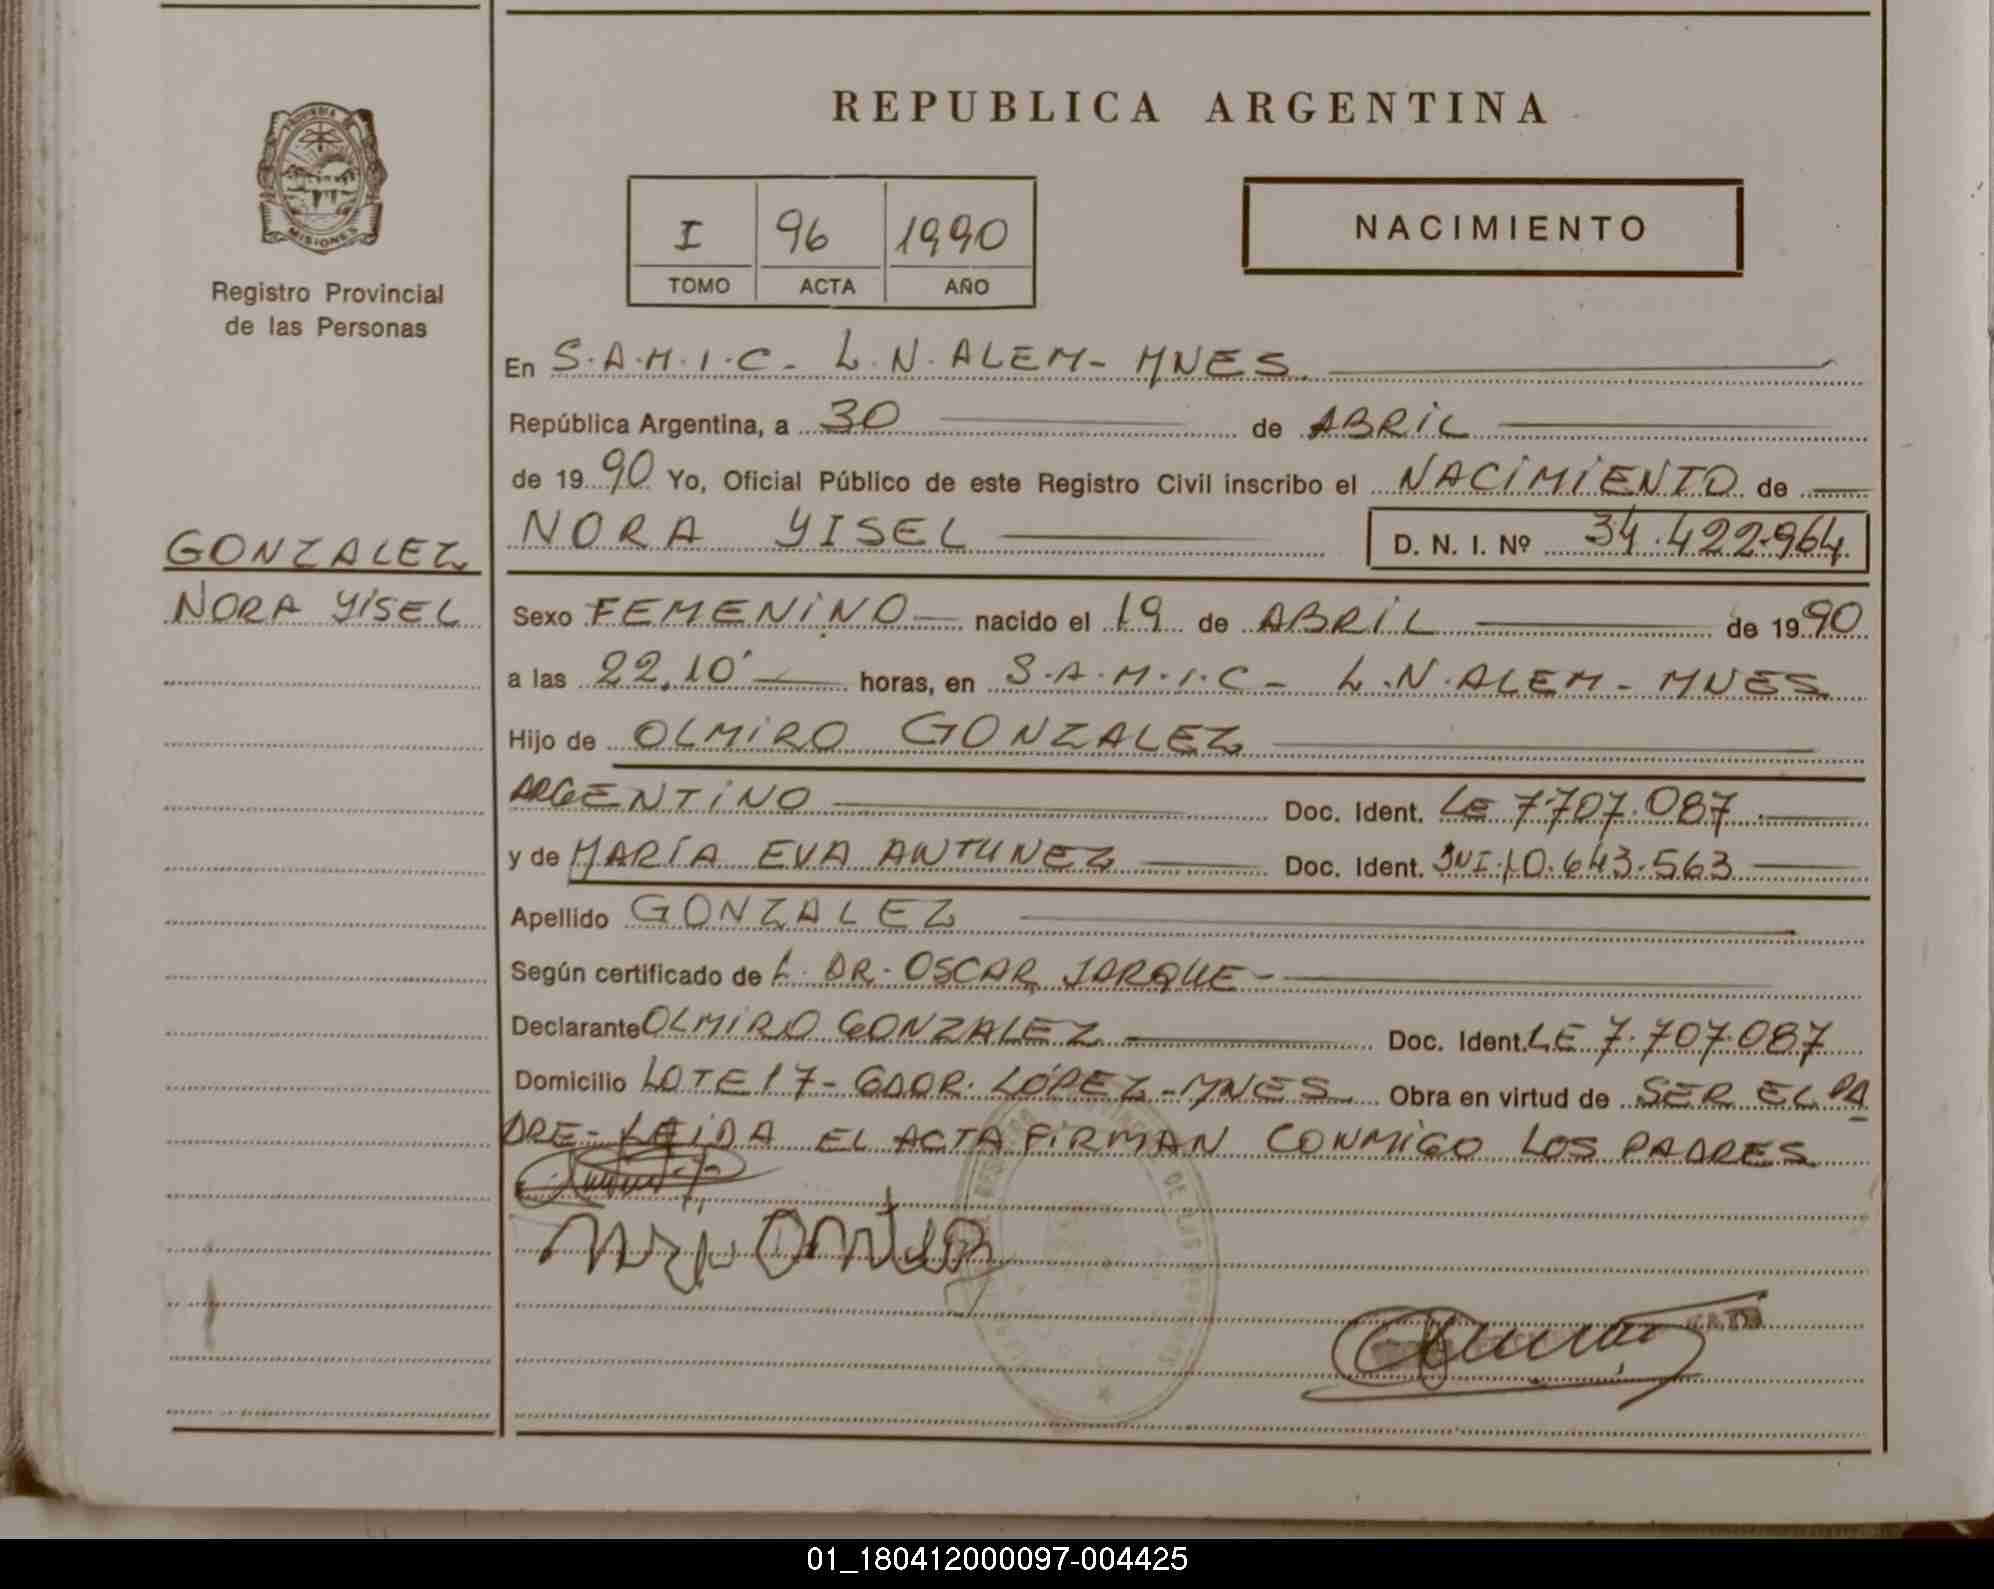 REPUBLICA ARGENTINA
MISIONES
Registro Provincial
de las Personas
I 96 1990
TOMO ACTA AÑO
NACIMIENTO
En S.A.M.I.C. - L.N. ALEM - MNES.
República Argentina, a 30 de ABRIL
de 1990 Yo, Oficial Público de este Registro Civil inscribo el NACIMIENTO de
NORA YISEL D. N. I. Nº 34.422.964
GONZALEZ
NORA YISEL
Sexo FEMENINO nacido el 19 de ABRIL de 1990
a las 22,10' horas, en S.A.M.I.C - L.N. ALEM - MNES
Hijo de OLMIRO GONZALEZ
ARGENTINO Doc. Ident. LE 7.707.087
y de MARÍA EVA ANTUNEZ Doc. Ident. DNI.10.643.563
Apellido GONZALEZ
Según certificado de L. DR. OSCAR JARQUE -
Declarante OLMIRO GONZALEZ Doc. Ident. LE 7.707.087
Domicilio LOTE 17 - GDOR. LÓPEZ - MNES Obra en virtud de SER EL PA
DRE - LEIDA EL ACTA FIRMAN CONMIGO LOS PADRES
DE LAS
01_180412000097-004425